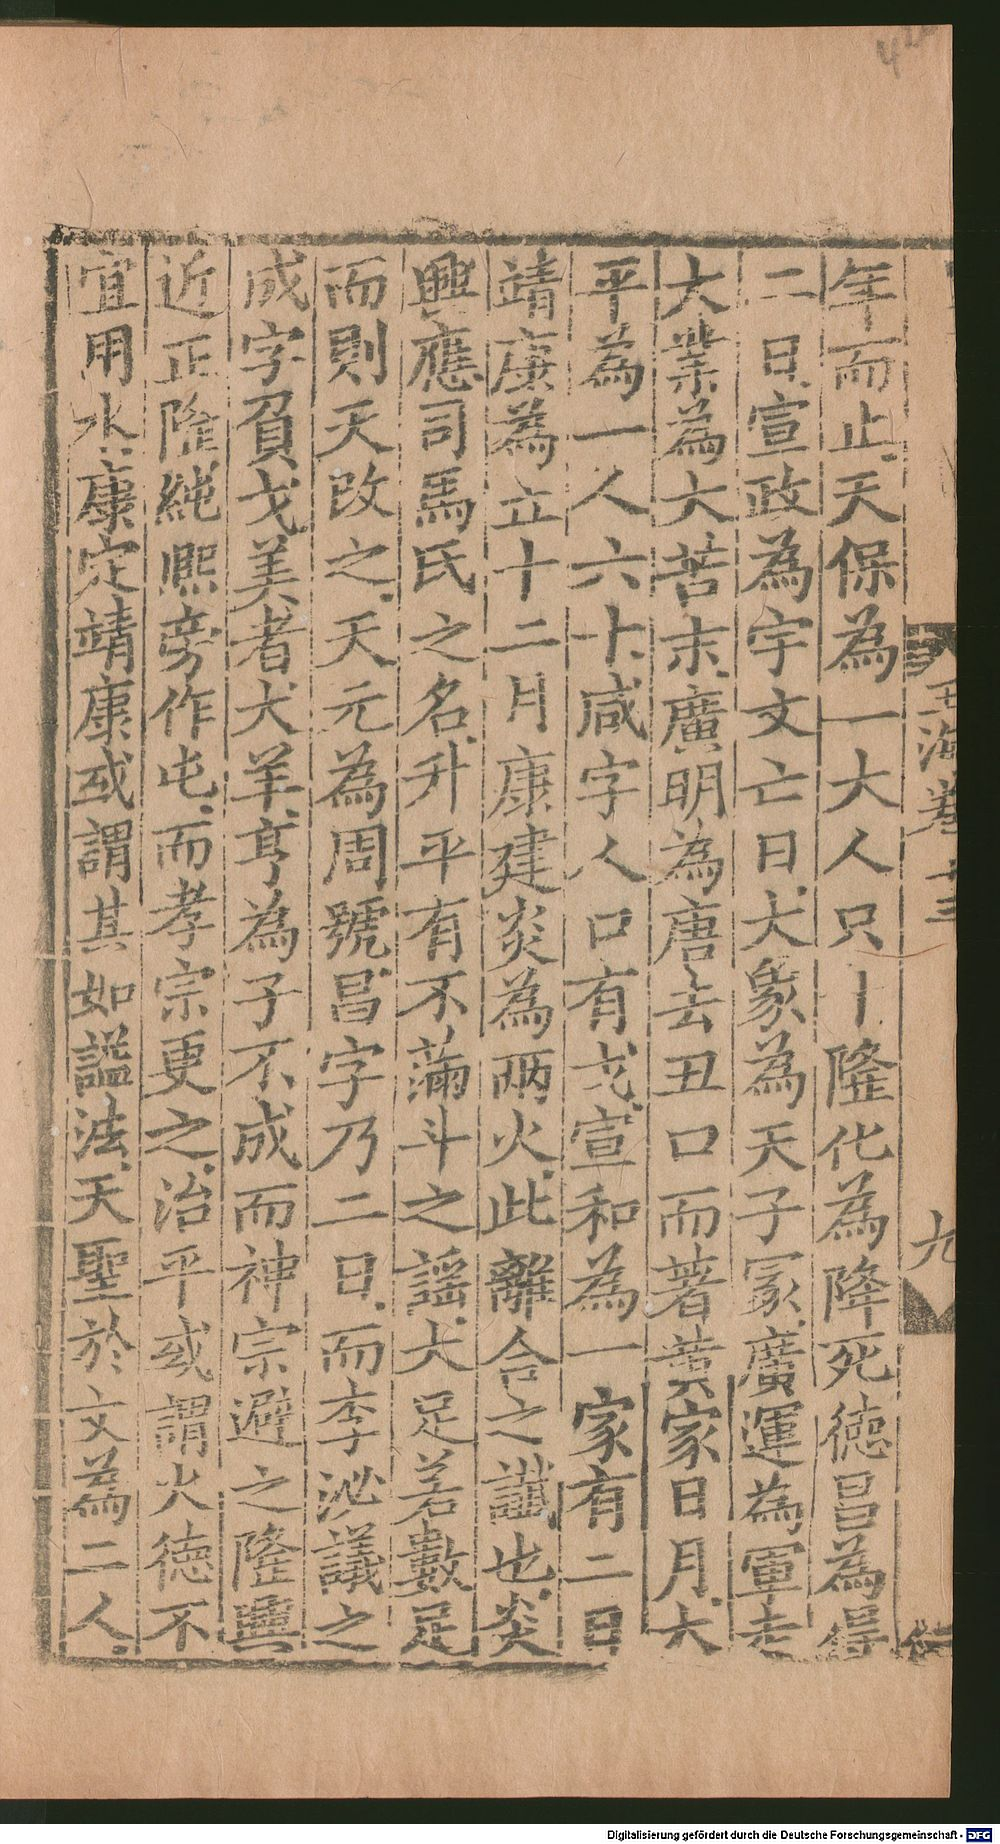 年而止天保為一大人只十隆化為降死德昌為得
二日宣政為宇文亡日大象為天子冢廣運為軍走
大業為大苦末廣明為唐去丑口而著黃家日月太
平為一人六十咸字人口有戈宣和為一家有二日
靖康為立十二月康建炎為兩火此離合之讖也炎
興應司馬氏之名升平有不滿斗之謡大足若數足
而則天改之天元為周號昌字乃二日而李泌議之
成字負戈美者犬羊亨為子不成而神宗避之隆興
近正隆純熙旁作屯而孝宗更之治平或謂火德不
宜用水康定靖康或謂其如謚法天聖於文為二人
玉海卷十三
九
Digitalisierung gefördert durch die Deutsche Forschungsgemeinschaft - DFG